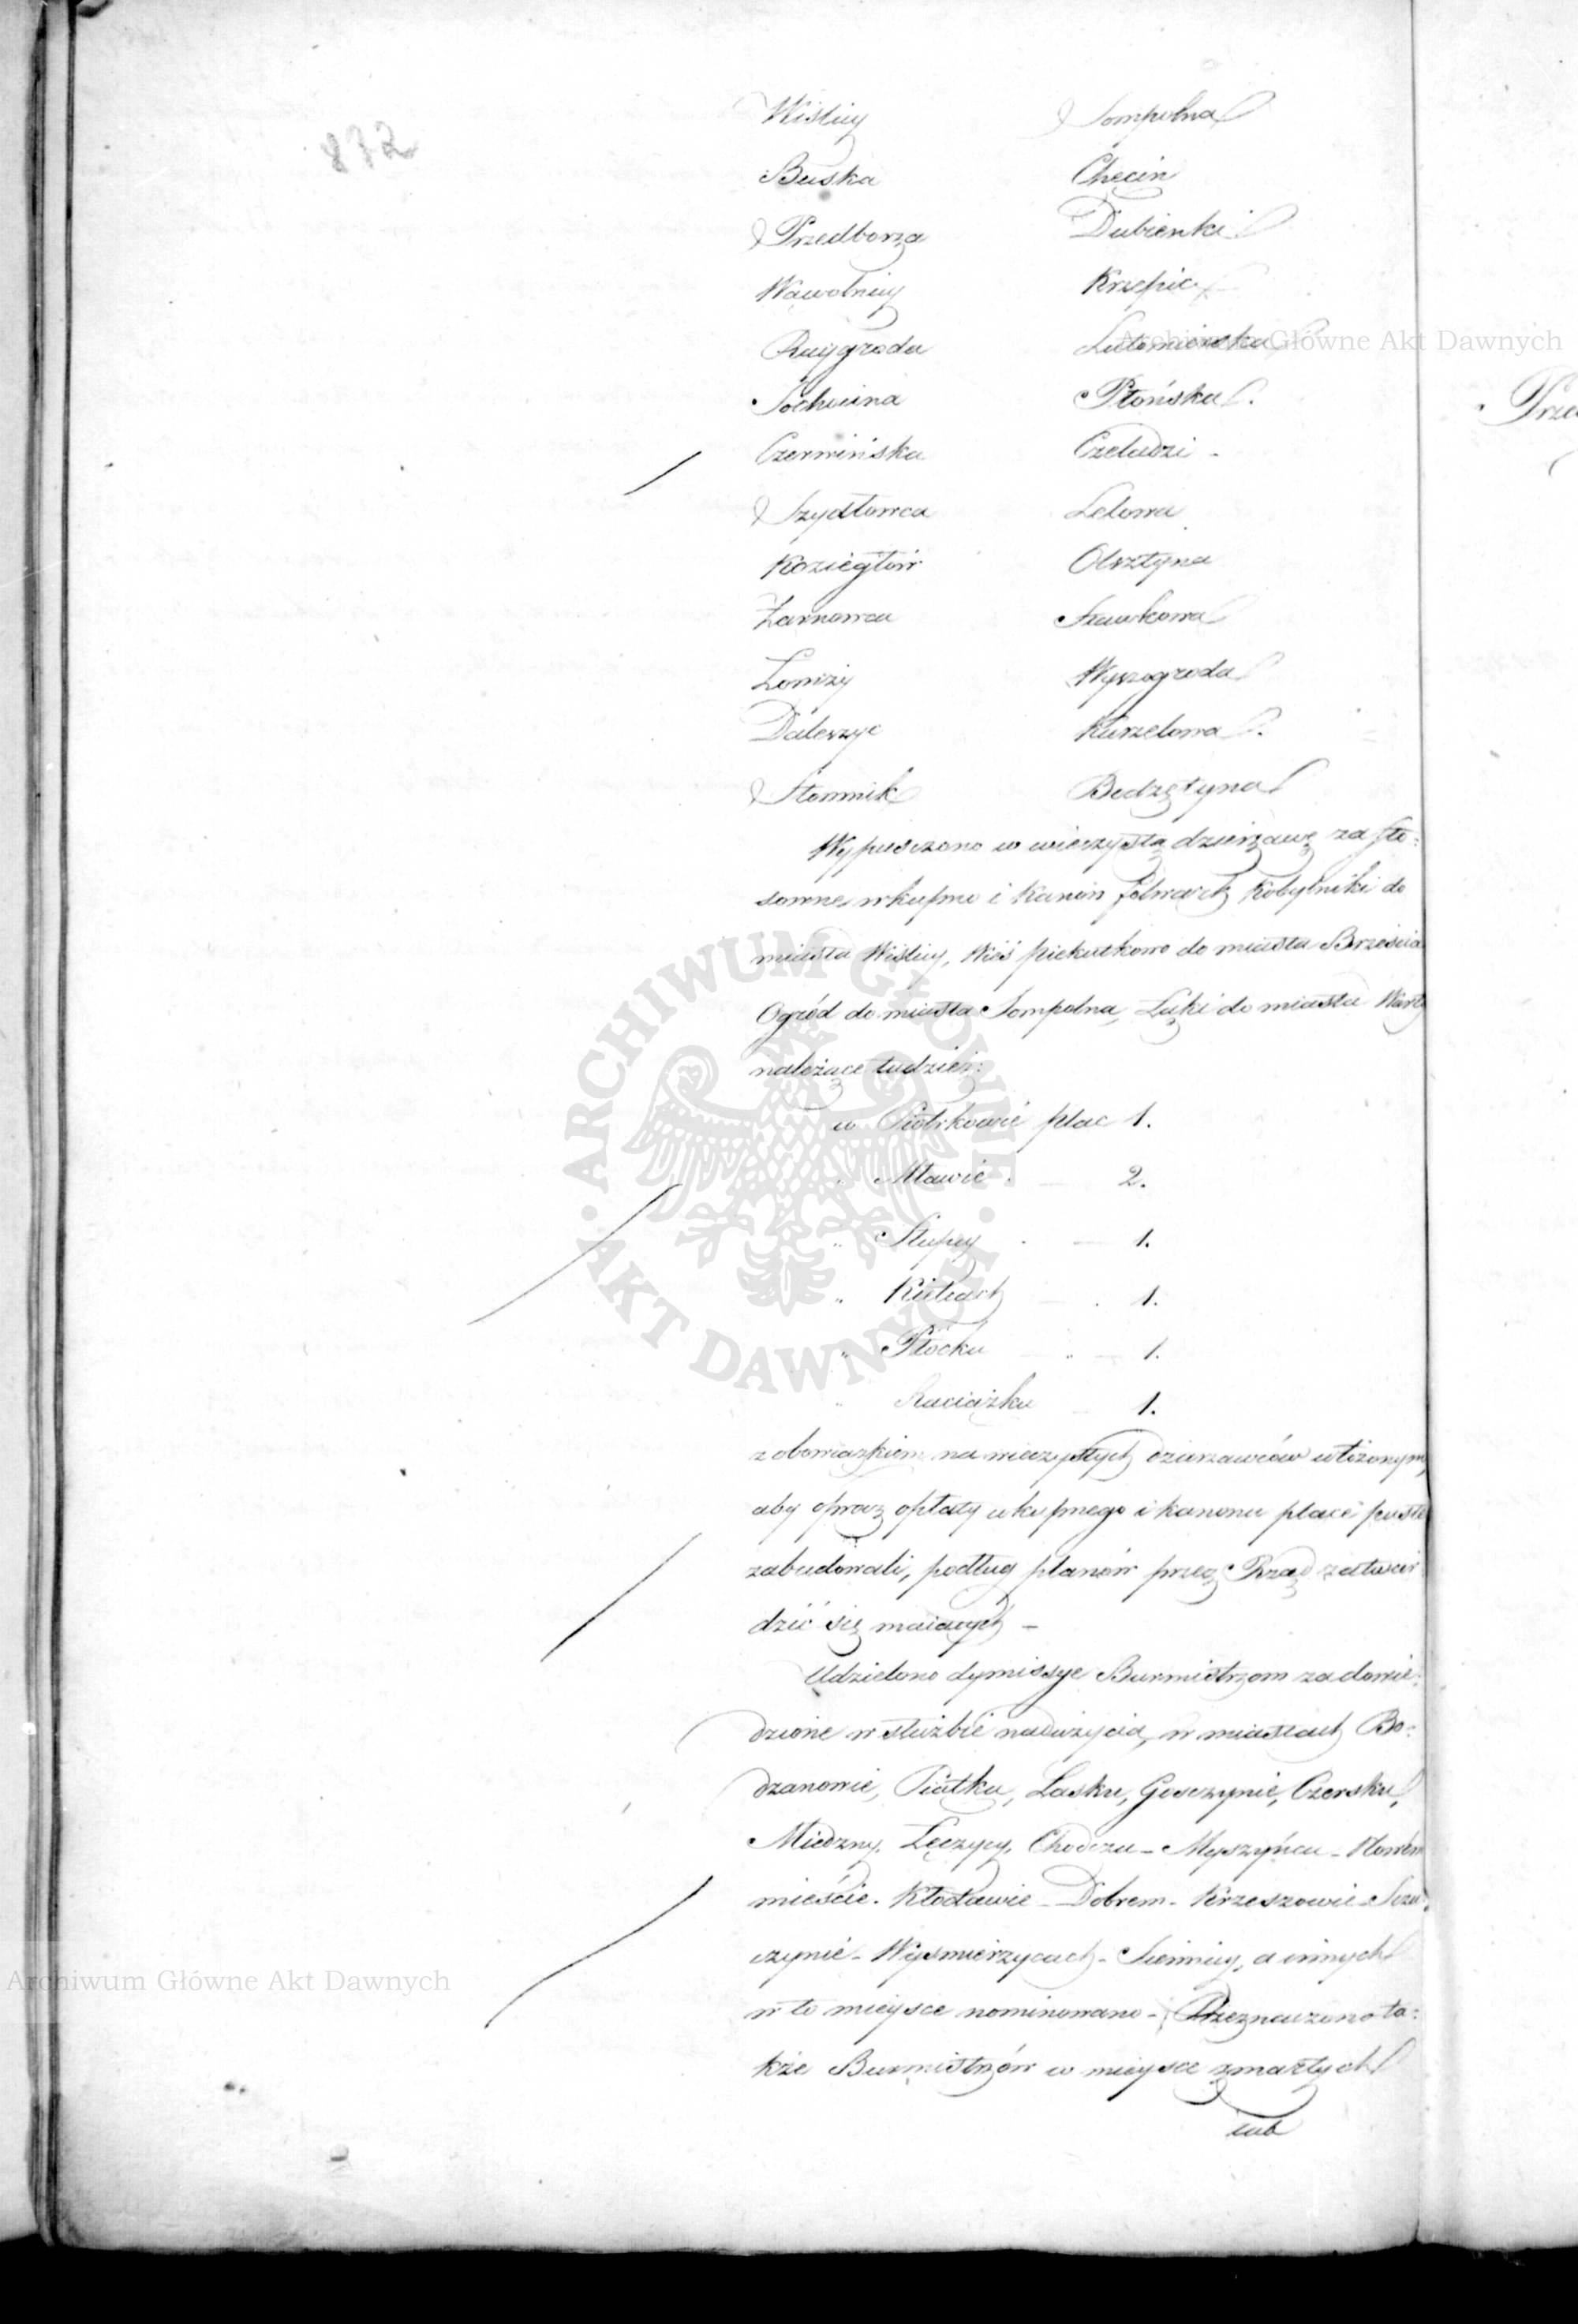 872
Wiślicy Sompolna
Buska Chęcin
Przedborza Dubienki
Wąwolnicy Krzepic
Raygroda Lutomierska
Sochocina Płońska.
Czerwińska Czeladzi -
Szydłowca Lelowa
Koziegłów Olsztyna
Żarnowca Sławkowa
Łomży Wyszogroda
Daleszyc Kurzelowa.
Słomnik Bodzętyna
Wypuszczono w wieczystą dzierżawę za sto-
sowne wkupne i Kanon folwark Kobylniki do
miasta Wiślicy, Wieś piekutkowo do miasta Brześcia
Ogród do miasta Sompolna, Łąki do miasta Warty
należące tudzież:
w Piotrkowie plac 1.
" Mławie 2.
" Słupcy 1.
" Kielcach 1.
" Płocku 1.
" Raciążku 1.
z obowiązkiem na wieczystych dzierżawców włożonym,
aby oprócz opłaty wkupnego i kanonu place puste
zabudowali, podług planów przez Rząd zatwier
dzić się maiących -
Udzielono dymissye Burmistrzom za dowie-
dzione w służbie nadużycia, w miastach Bo-
dzanowie, Piątku, Łasku, Goszczynie, Czersku,
Miedzny, Łęczycy, Chodczu - Myszyńcu - Nowém
mieście. Kłodawie - Dobrem - Krzeszowie - Szcu-
czynie - Wyśmierzycach - Siennicy, a innych
w to mieysce nominowano - Przeznaczono ta-
kże Burmistrzów w mieysce zmarłych
lub
Archiwum Główne Akt Dawnych
Archiwum Główne Akt Dawnych
ARCHIWUM GŁÓWNE AKT DAWNYCH